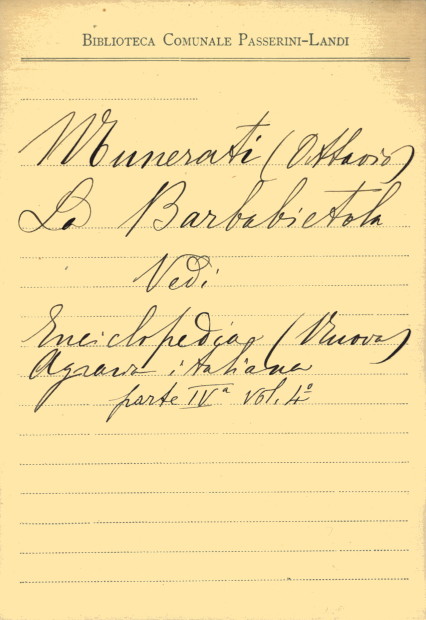 BIBLIOTECA COMUNALE PASSERINI-LANDI
Munerati (Ottavio)
La Barbabietola
Vedi
Enciclopedia (Nuova)
Agraria italiana
parte IVª vol. 4º